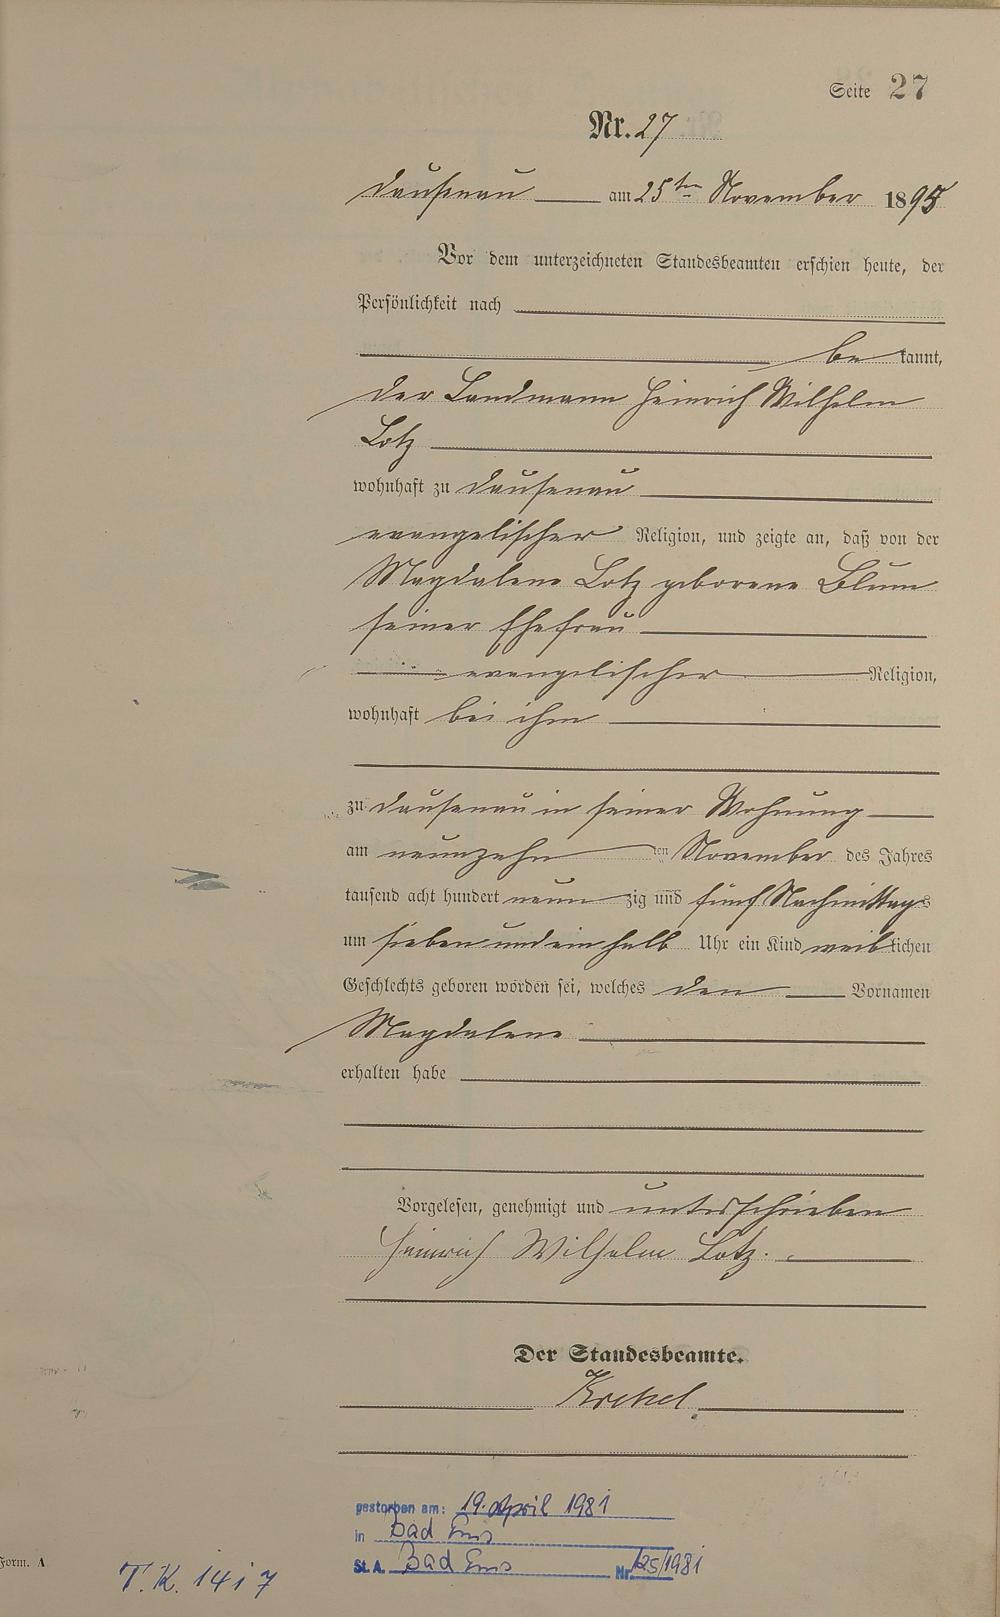 Seite 27
Nr. 27
Dausenau am 25ten November 1895
Vor dem unterzeichneten Standesbeamten erschien heute, der
Persönlichkeit nach
bekannt,
der Landmann Heinrich Wilhelm
Lotz
wohnhaft zu Dausenau
evangelischer Religion, und zeigte an, daß von der
Magdalene Lotz geborene Blum
seiner Ehefrau
evangelischer Religion,
wohnhaft bei ihm
zu Dausenau in seiner Wohnung
am neunzehn ten November des Jahres
tausend acht hundert neunzig und fünf Nachmittags
um sieben und ein halb Uhr ein Kind weiblichen
Geschlechts geboren worden sei, welches den Vornamen
Magdalene
erhalten habe
Vorgelesen, genehmigt und unterschrieben
Heinrich Wilhelm Lotz.
Der Standesbeamte.
gestorben am: 19. April 1981
in Bad Ems
St. A. Bad Ems Nr. 125/1981
Form. A
T.K. 1417